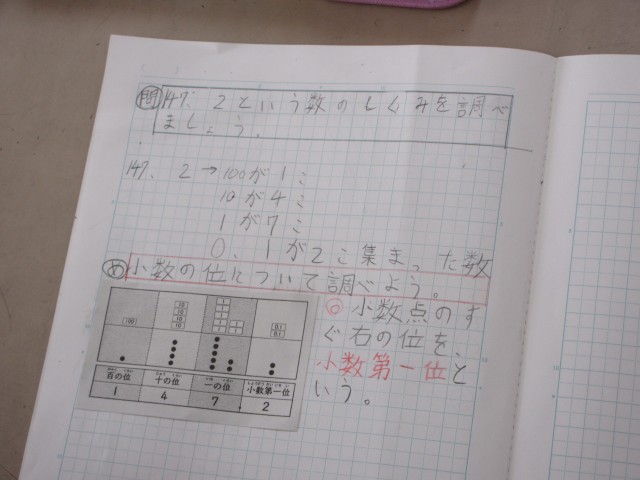 問 147.2という数のしくみを調べ
ましょう.
147.2→100が1こ
10が4こ
1が7こ
0.1が2こ集まった数
め 小数の位について調べよう。
100
10
10
10
10
1
1
1
1
1
1
1
0.1
0.1
百の位 十の位 一の位 小数第一位
1 4 7 . 2
◎小数点のす
ぐ右の位を、
小数第一位と
いう。